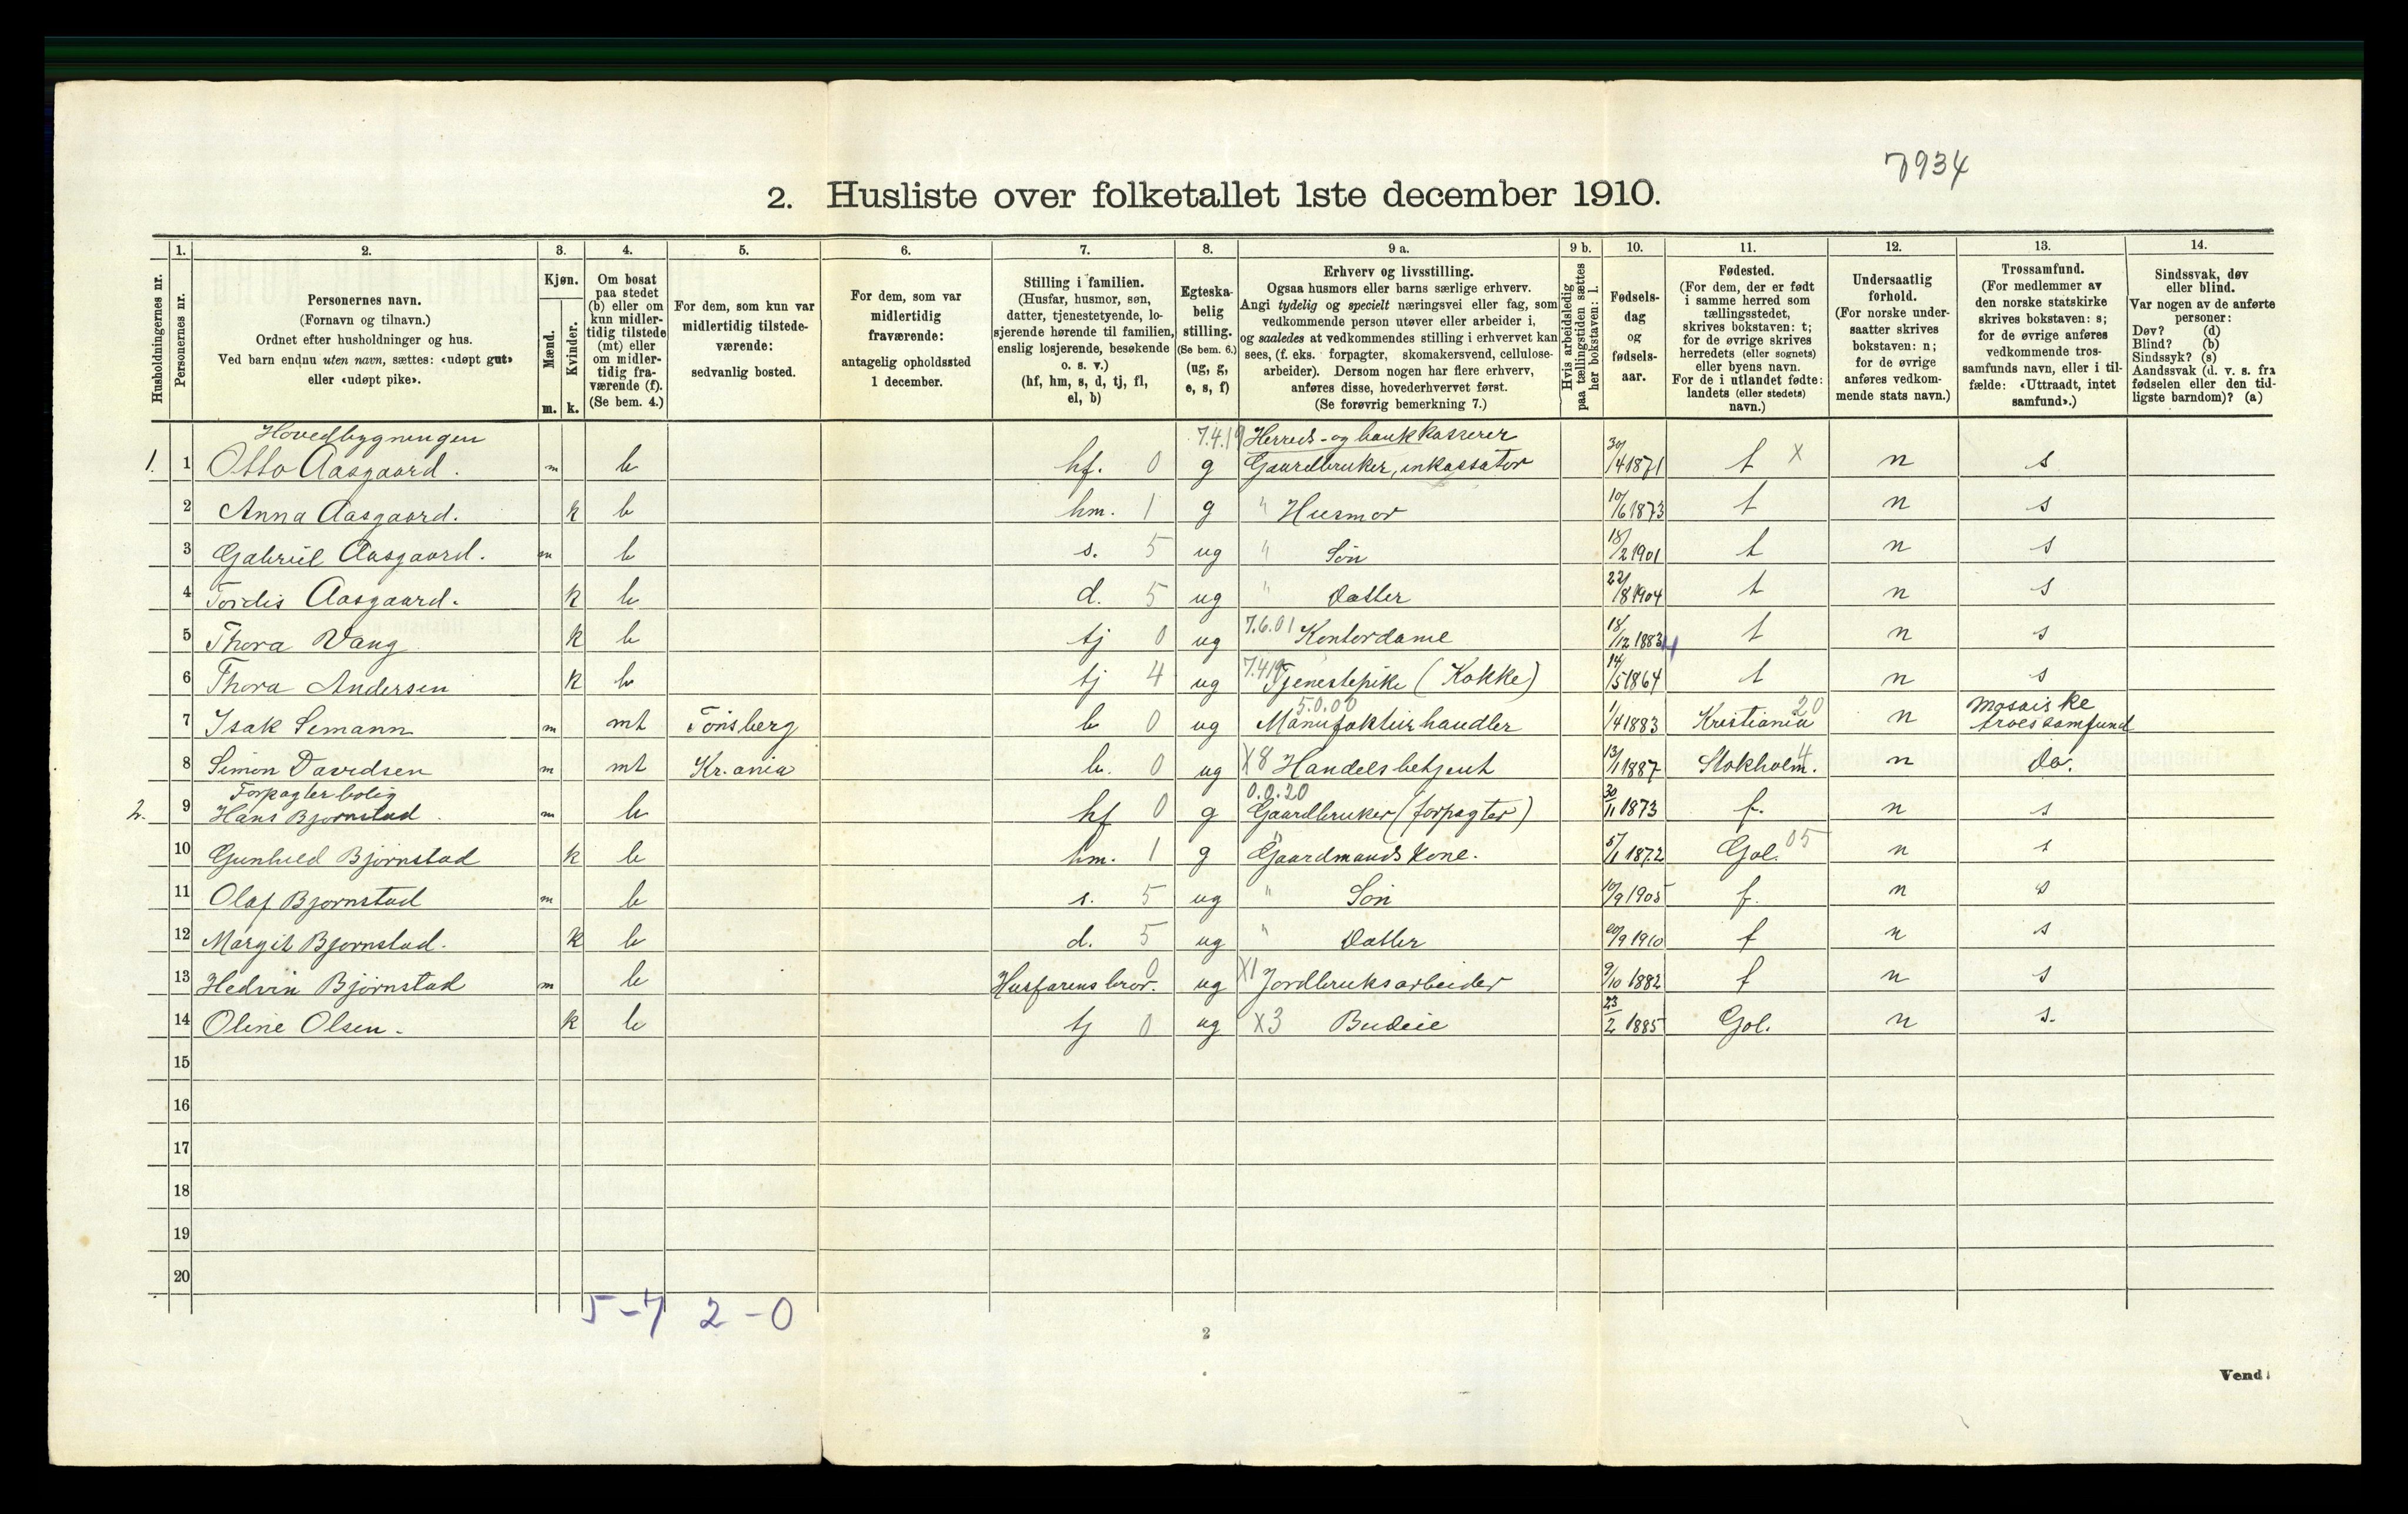 7934
2. Husliste over folketallet 1ste december 1910.
Husholdningernes nr.
1.
Personernes nr.
2.
Personernes navn.
(Fornavn og tilnavn.)
Ordnet efter husholdninger og hus.
Ved barn endnu uten navn, sættes: «udøpt gut»
eller «udøpt pike».
3.
Kjøn.
Mænd.
Kvinder.
m. k.
4.
Om bosat
paa stedet
(b) eller om
kun midler-
tidig tilstede
(mt) eller
om midler-
tidig fra-
værende (f).
(Se bem. 4.)
5.
For dem, som kun var
midlertidig tilstede-
værende:
sedvanlig bosted.
6.
For dem, som var
midlertidig
fraværende:
antagelig opholdssted
1 december.
7.
Stilling i familien.
(Husfar, husmor, søn,
datter, tjenestetyende, lo-
sjerende hørende til familien,
enslig losjerende, besøkende
o. s. v.)
(hf, hm, s, d, tj, fl,
el, b)
8.
Egteska-
belig
stilling.
(Se bem. 6.)
(ug, g,
e, s, f)
9 a.
Erhverv og livsstilling.
Ogsaa husmors eller barns særlige erhverv.
Angi tydelig og specielt næringsvei eller fag, som
vedkommende person utøver eller arbeider i,
og saaledes at vedkommendes stilling i erhvervet kan
sees, (f. eks. forpagter, skomakersvend, cellulose-
arbeider). Dersom nogen har flere erhverv,
anføres disse, hovederhvervet først.
(Se forøvrig bemerkning 7.)
9 b.
Hvis arbeidsledig
paa tællingstiden sættes
her bokstaven: l.
10.
Fødsels-
dag
og
fødsels-
aar.
11.
Fødested.
(For dem, der er født
i samme herred som
tællingsstedet,
skrives bokstaven: t;
for de øvrige skrives
herredets (eller sognets)
eller byens navn.
For de i utlandet fødte:
landets (eller stedets)
navn.)
12.
Undersaatlig
forhold.
(For norske under-
saatter skrives
bokstaven: n;
for de øvrige
anføres vedkom-
mende stats navn.)
13.
Trossamfund.
(For medlemmer av
den norske statskirke
skrives bokstaven: s;
for de øvrige anføres
vedkommende tros-
samfunds navn, eller i til-
fælde: «Uttraadt, intet
samfund».)
14.
Sindssvak, døv
eller blind.
Var nogen av de anførte
personer:
Døv? (d)
Blind? (b)
Sindssyk? (s)
Aandssvak (d. v. s. fra
fødselen eller den tid-
ligste barndom)? (a)
Hovedbygningen 7.4.19 Herreds- og bankkasserer
1. 1 Otto Aasgaard. m b hf. 0 g Gaardbruker, inkassator 30/4 1871 t x n s
2 Anna Aasgaard. k b hm. 1 g " Husmor 10/6 1873 t n s
3 Gabriel Aasgaard. m b s. 5 ug " Søn 18/2 1901 t n s
4 Tordis Aasgaard. k b d. 5 ug " Datter 22/8 1904 t n s
5 Thora Vang k b tj 0 ug 7.6.01 Kontordame 18/12 1883 4 t n s
6 Thora Andersen k b tj 4 ug 7.4.19 Tjenestepike (Kokke) 14/5 1864 t n s
5.0.00 20 Mosaiske
7 Isak Semann m mt Tönsberg b 0 ug Manufakturhandler 1/4 1883 Kristiania n troessamfund
8 Simon Davidsen m mt Kr.ania b. 0 ug X8 Handelsbetjent 13/1 1887 Stokholm. 4 n do.
Forpagterbolig 0.0.20
2. 9 Hans Bjørnstad. m b hf 0 g Gaardbruker (forpagter) 30/11 1873 f. n s
10 Gunhild Bjørnstad k b hm. 1 g " Gaardmands kone. 5/1 1872 Gol. 05 n s
11 Olaf Bjørnstad m b s. 5 ug " Søn 10/9 1905 f. n s
12 Margit Bjørnstad. k b d. 5 ug " Datter 20/9 1910 f n s
13 Hedvin Bjørnstad m b Husfarens bror. 0 ug X1 Jordbruksarbeider 9/10 1882 f n s
14 Oline Olsen. k b tj 0 ug X3 Budeie 23/2 1885 Gol. n s.
15
16
17
18
19
20
5-7 2-0
2
Vend!